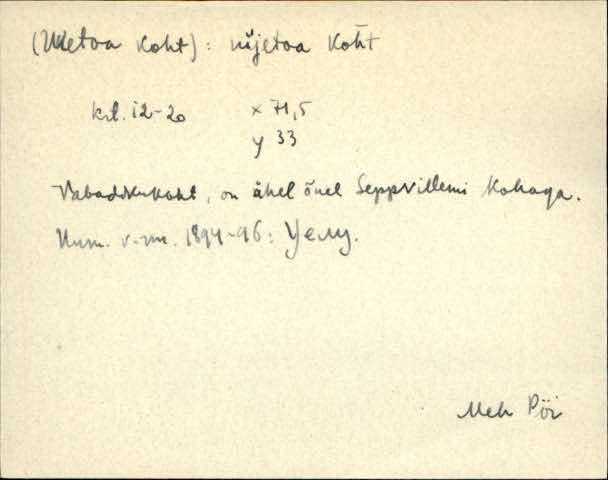 (Uuetoa koht): ūi̯jetoa kōt
krt. 12-20 x 71,5
y 33
Vabadikukoht, on ühel õuel Seppvillemi kohaga.
Hum. v-rm. 1894-96: Уелу.
Meh Pöi